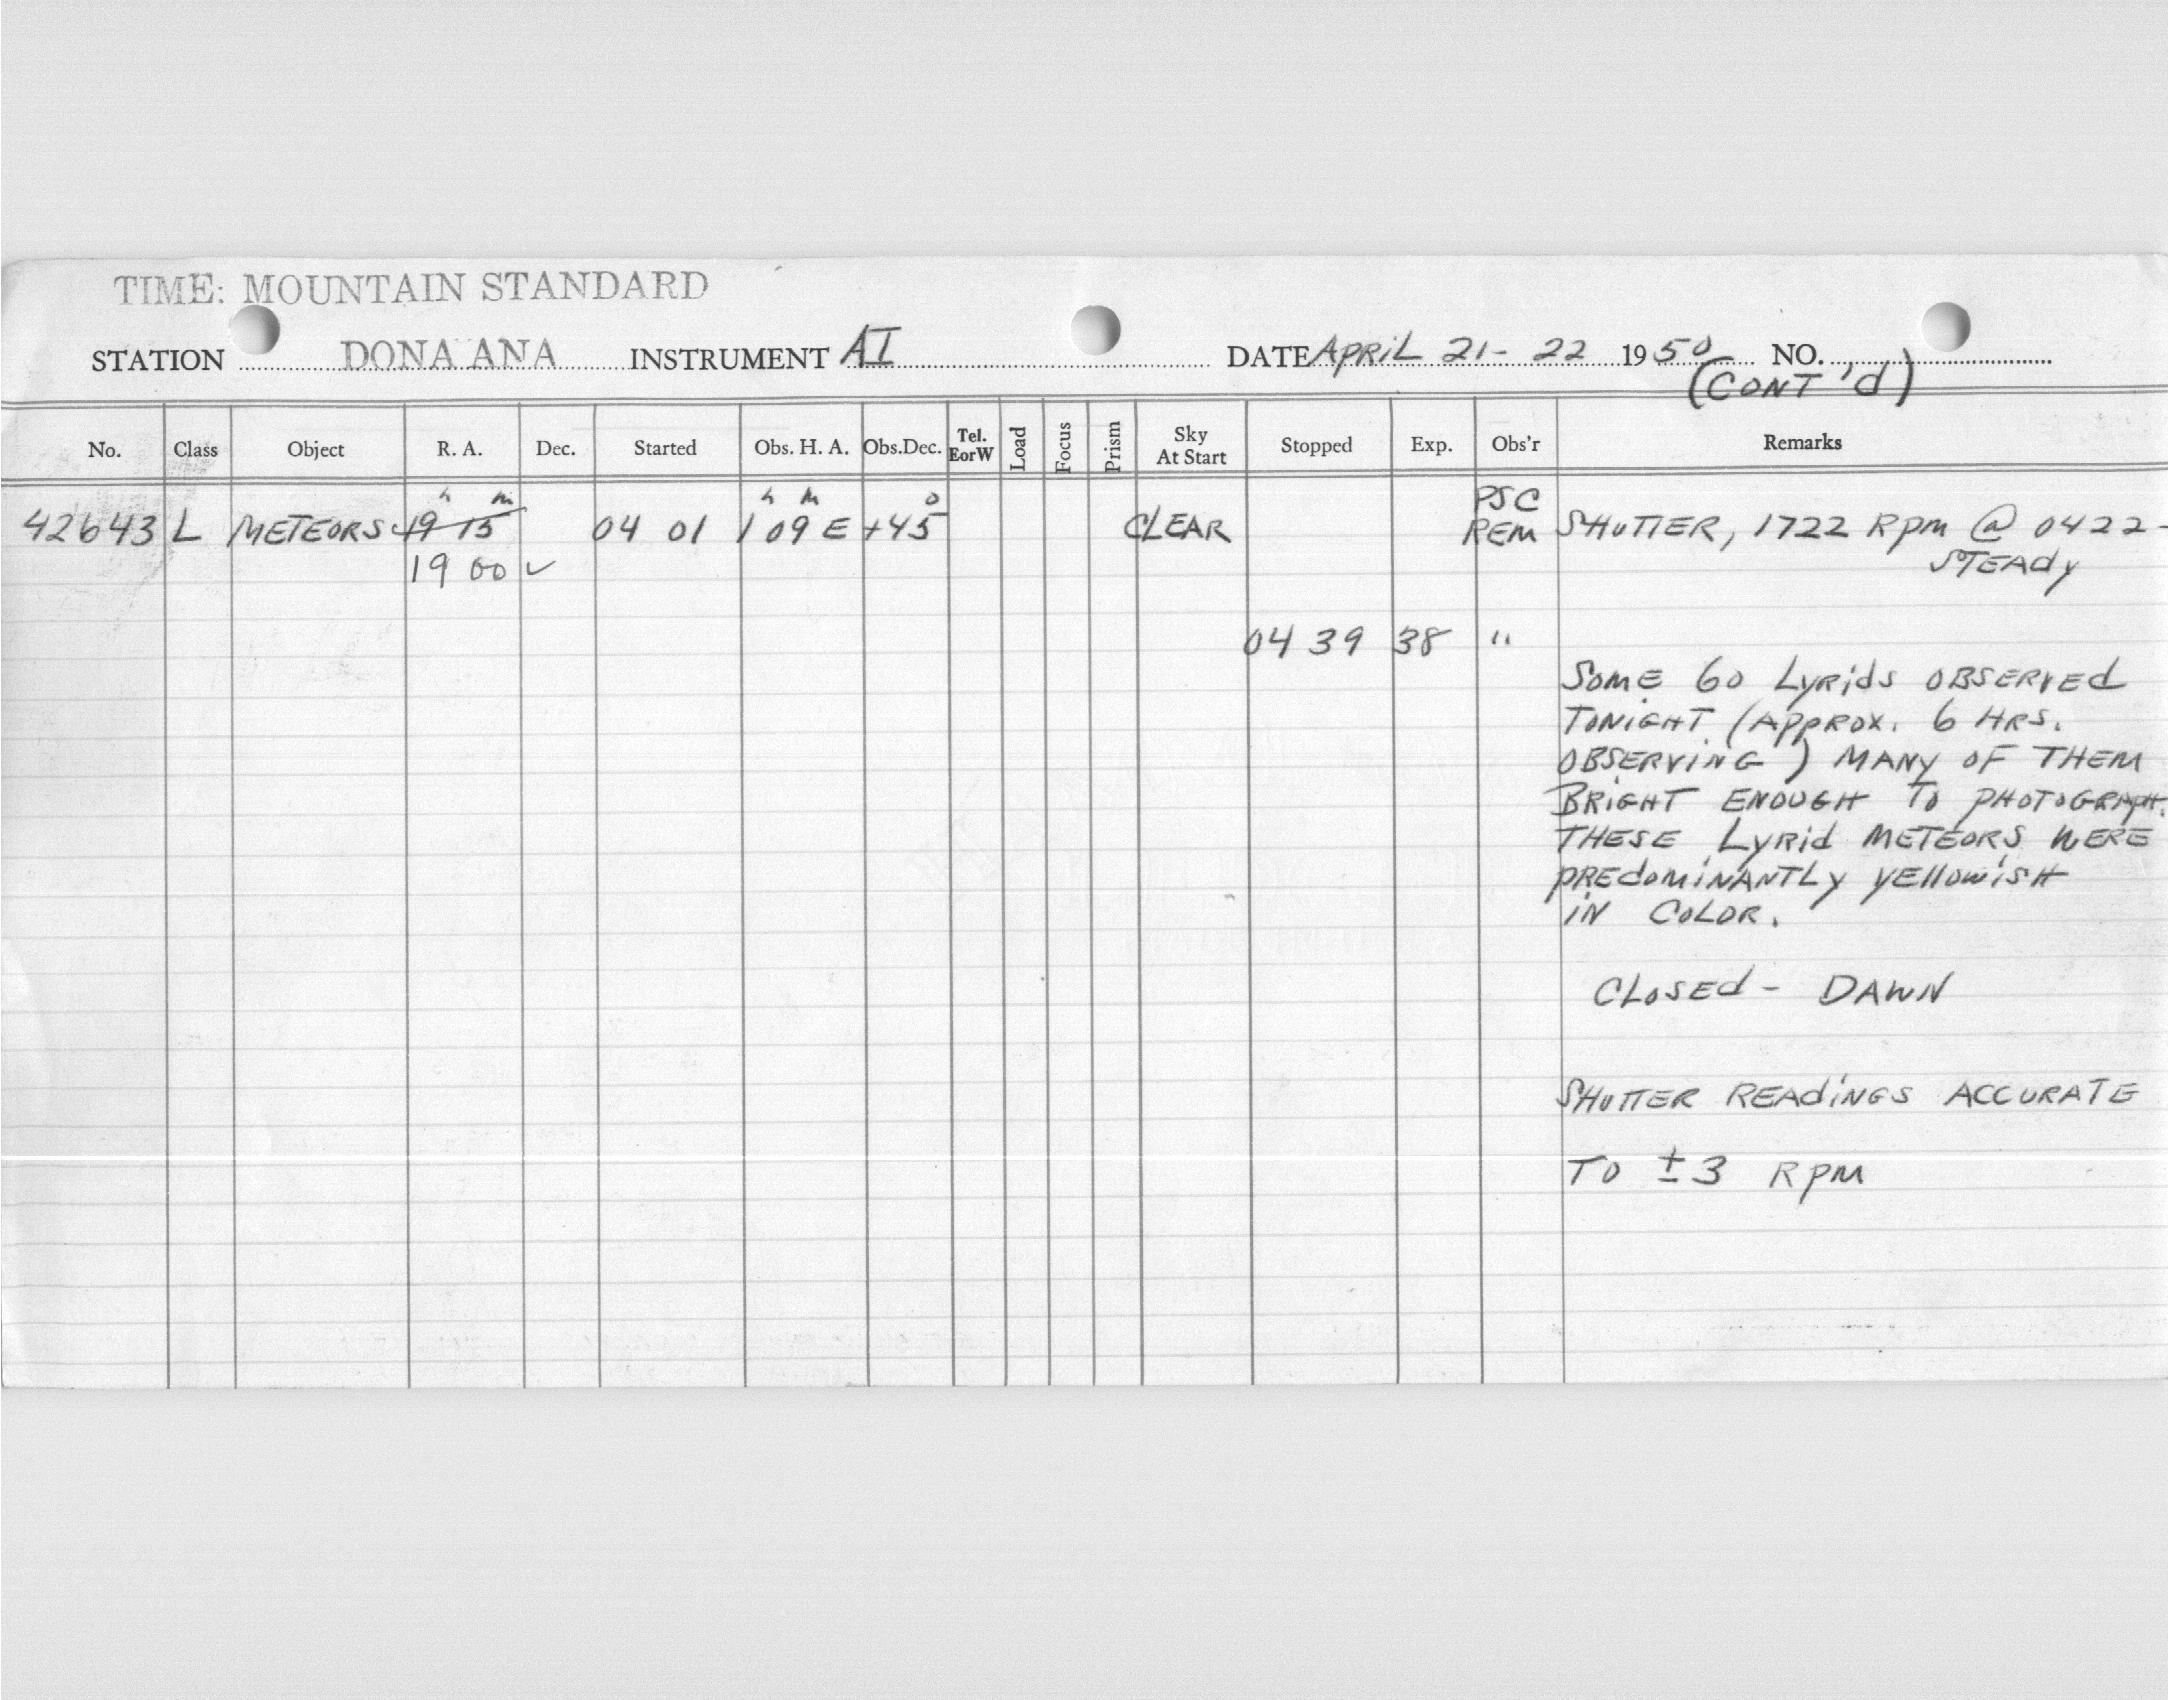 TIME: MOUNTAIN STANDARD
STATION DONA ANA INSTRUMENT AI DATE APRIL 21-22 1950 NO.
(CONT'd)
No. Class Object R. A. Dec. Started Obs. H. A. Obs.Dec. Tel. EorW Load Focus Prism Sky At Start Stopped Exp. Obs'r Remarks
h m h m o PSC
42643 L METEORS 19 15 04 01 1 09 E +45 CLEAR REM SHUTTER, 1722 RPM @ 0422-
19 00 ✓ STEADY
04 39 38 "
SOME 60 LYRIDS OBSERVED
TONIGHT (APPROX. 6 HRS.
OBSERVING) MANY OF THEM
BRIGHT ENOUGH TO PHOTOGRAPH.
THESE LYRID METEORS WERE
PREDOMINANTLY YELLOWISH
IN COLOR.
CLOSED - DAWN
SHUTTER READINGS ACCURATE
TO ±3 RPM